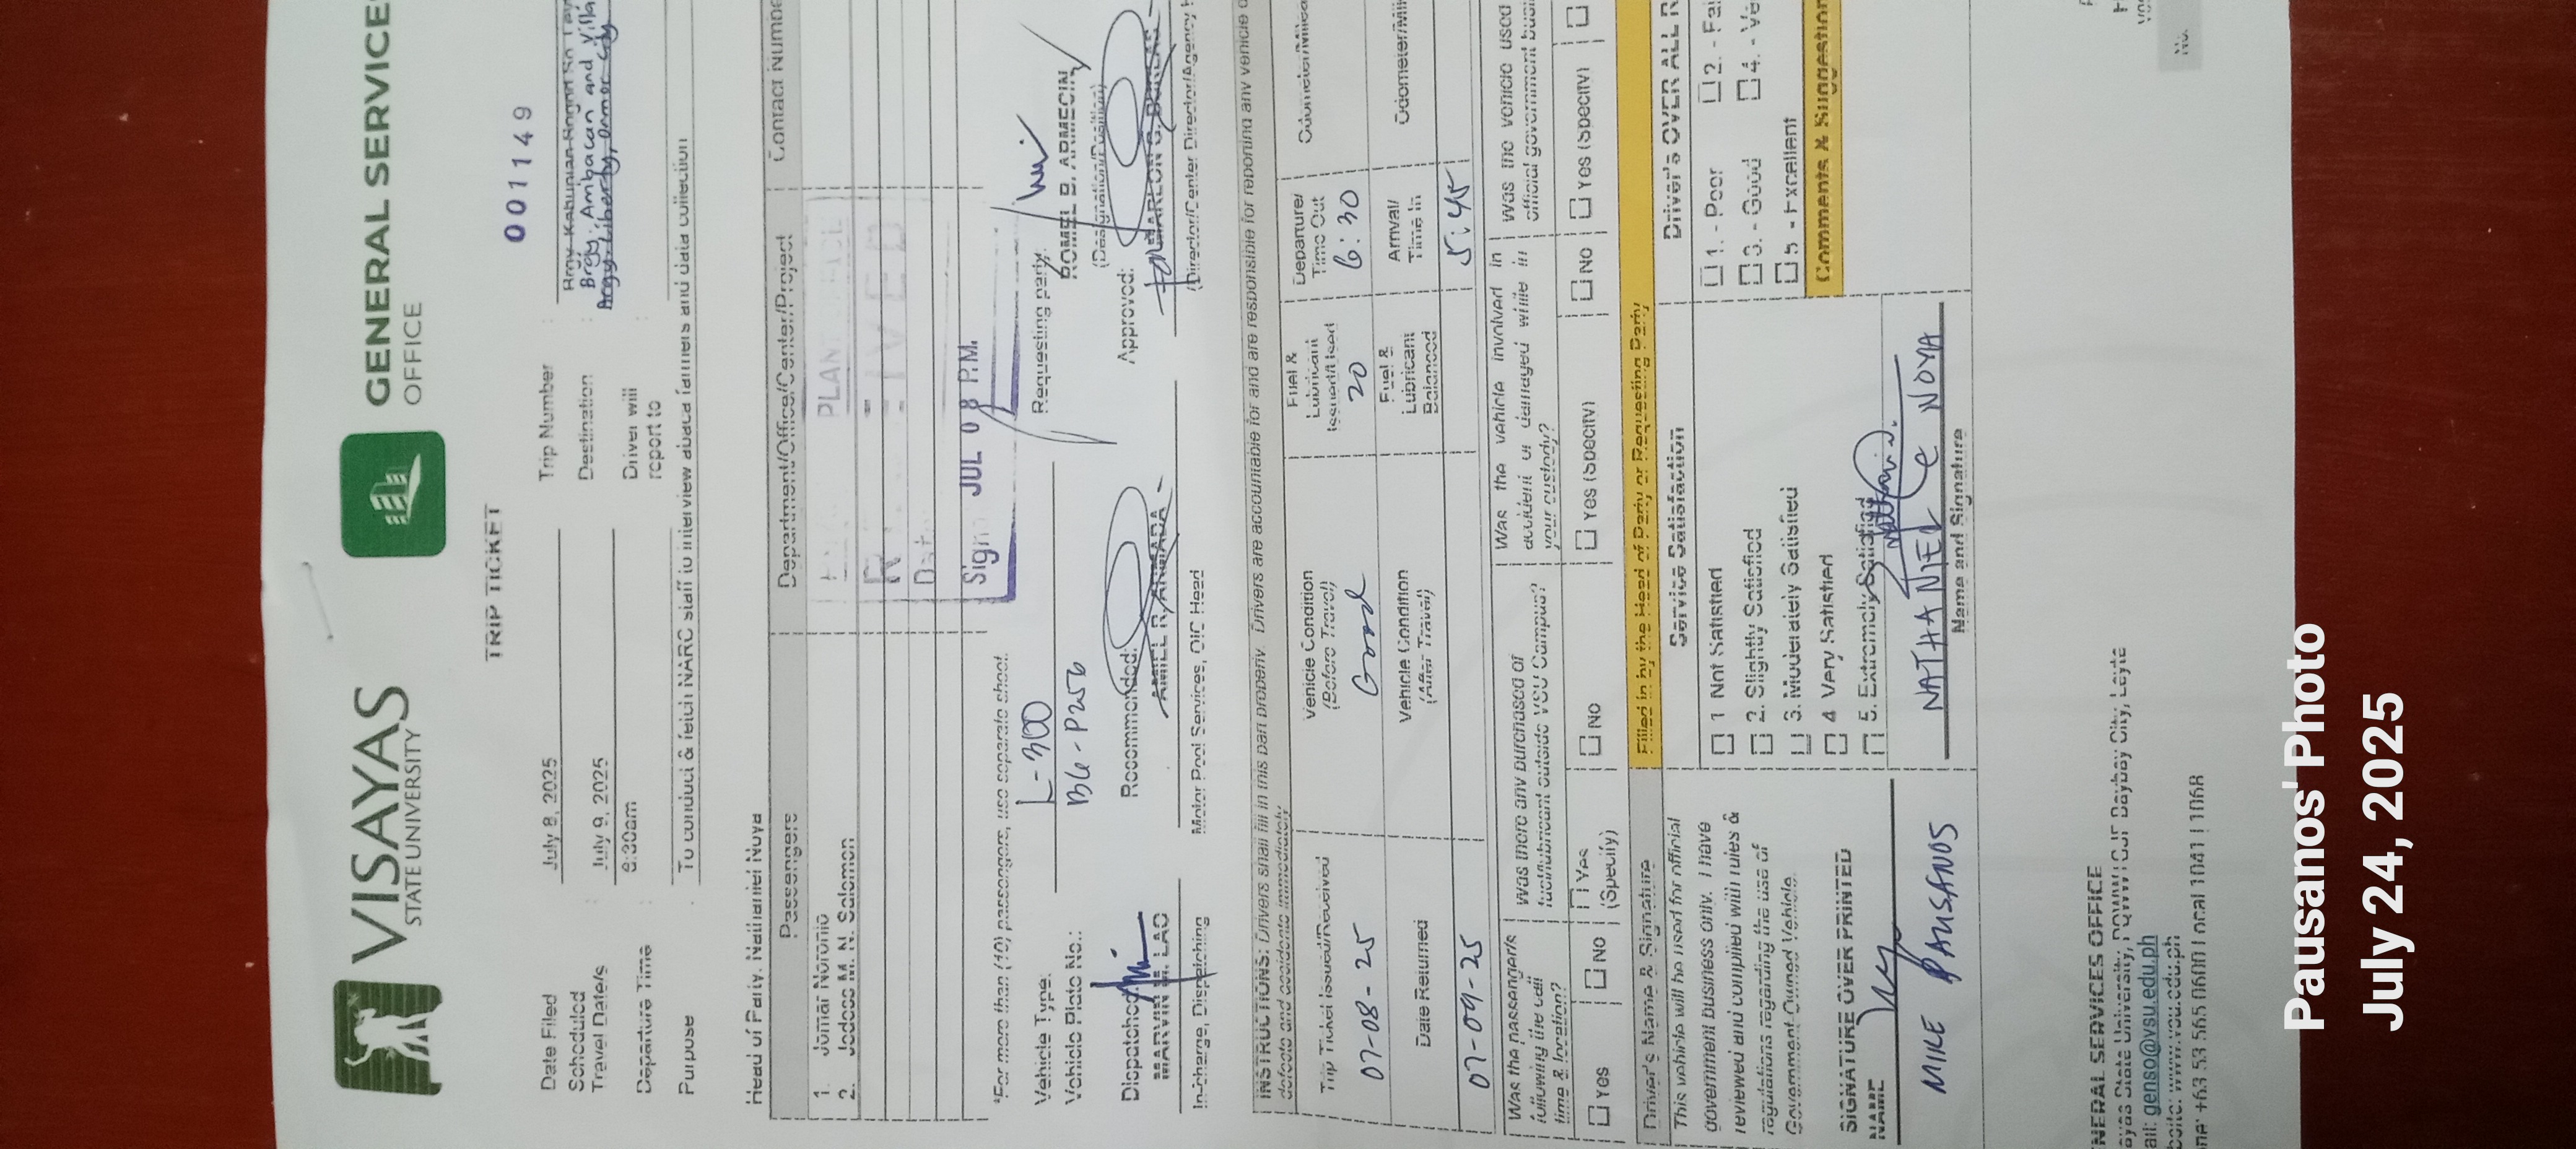 VISAYAS
STATE UNIVERSITY
GENERAL SERVICES
OFFICE
TRIP TICKET
001149
Date Filed : July 8, 2025
Trip Number :
Scheduled
Travel Date/s : July 9, 2025
Destination : Brgy Kabunian
Brgy. Ambacan and Villa
Brgy. Liberty, Ormoc City
Departure Time : 6:30am
Driver will
report to :
Purpose : To conduct & fetch NARC staff to interview abaca farmers and data collection
Head of Party: Nathaniel Noya
Passengers
Department/Office/Center/Project
Contact Numbe
1. Jomar Noronio
2. M. N. Salomon
PLAN
Sign JUL 08 P.M.
*For more than (10) passengers, use separate sheet.
Vehicle Type: L-300
Vehicle Plate No.: B6-P256
Requesting party:
ROMEL B. ARMECIN
(Designation/Position)
Dispatched:
MARVIN M. LAO
In-Charge, Dispatching
Recommended:
Motor Pool Services, OIC Head
Approved:
(Director/Center Director/Agency H
INSTRUCTIONS: Drivers shall fill in this part properly. Drivers are accountable for and are responsible for reporting any vehicle d
defects and accidents immediately
Trip Ticket Issued/Received
07-08-25
Vehicle Condition
(Before Travel)
Good
Fuel &
Lubricant
Issued/Used
20
Departure/
Time Out
6:30
Odometer/Milea
Date Returned
07-09-25
Vehicle Condition
(After Travel)
Fuel &
Lubricant
Balanced
Arrival/
Time In
5:45
Odometer/Mil
Was the passenger/s
following the call
time & location?
Yes
No
Was there any purchased of
fuel/lubricant outside VSU Campus?
Yes
(Specify)
No
Was the vehicle involved in
accident or damaged while in
your custody?
Yes (Specify)
No
Was the vehicle used
official government busi
Yes (Specify)
Filled in by the Head of Party or Requesting Party
Driver's Name & Signature
This vehicle will be used for official
government business only. I have
reviewed and complied with rules &
regulations regarding the use of
Government-Owned Vehicle.
SIGNATURE OVER PRINTED
NAME
MIKE PAUSANOS
Service Satisfaction
1 Not Satisfied
2. Slightly Satisfied
3. Moderately Satisfied
4 Very Satisfied
5. Extremely Satisfied
NATHANIEL C NOYA
Name and Signature
Driver's OVER ALL R
1. - Poor
2. - Fai
3. - Good
4. - Ve
5 - Excellent
Comments & Suggestion
NERAL SERVICES OFFICE
ayas State University, Baybay City, Leyte
ail: genso@vsu.edu.ph
bsite: www.vsu.edu.ph
ne: +63 53 565 0600 Local 1041 | 1068
No.
Pausanos' Photo
July 24, 2025